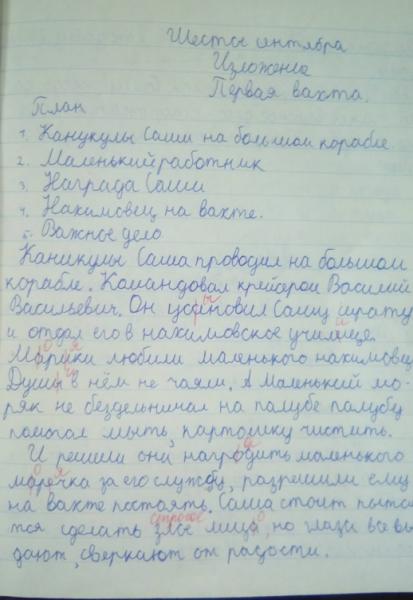 Шестое сентября
Изложение
Первая вахта.
План
1. Канукулы Саши на большом корабле
2. Маленький работник
3. Награда Саши
4. Нахимовец на вахте.
5. Важное дело
Каникулы Саша проводил на большом
корабле. Командовал крейсером Василий
Васильевич. Он усыновил Сашу сироту
и отдал его в нахимовское училище.
Моряки любили маленького нахимовца
Души в нём не чаяли. А маленький мо-
ряк не бездельничал на палубе палубу
помогал мыть, картошку чистить.
И решили они наградить маленького
морячка за его службу, разрешили ему
на вахте постоять. Саша стоит пыта-
тся сделать строгое лицо, но глаза все вы
дают, сверкают от радости.